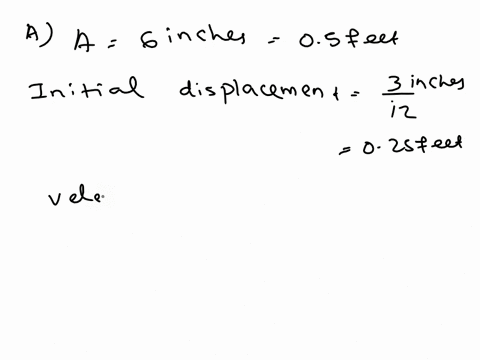 A) A = 6 inches = 0.5 feet
Initial displacement = 3 inches / 12
= 0.25 feet
vele